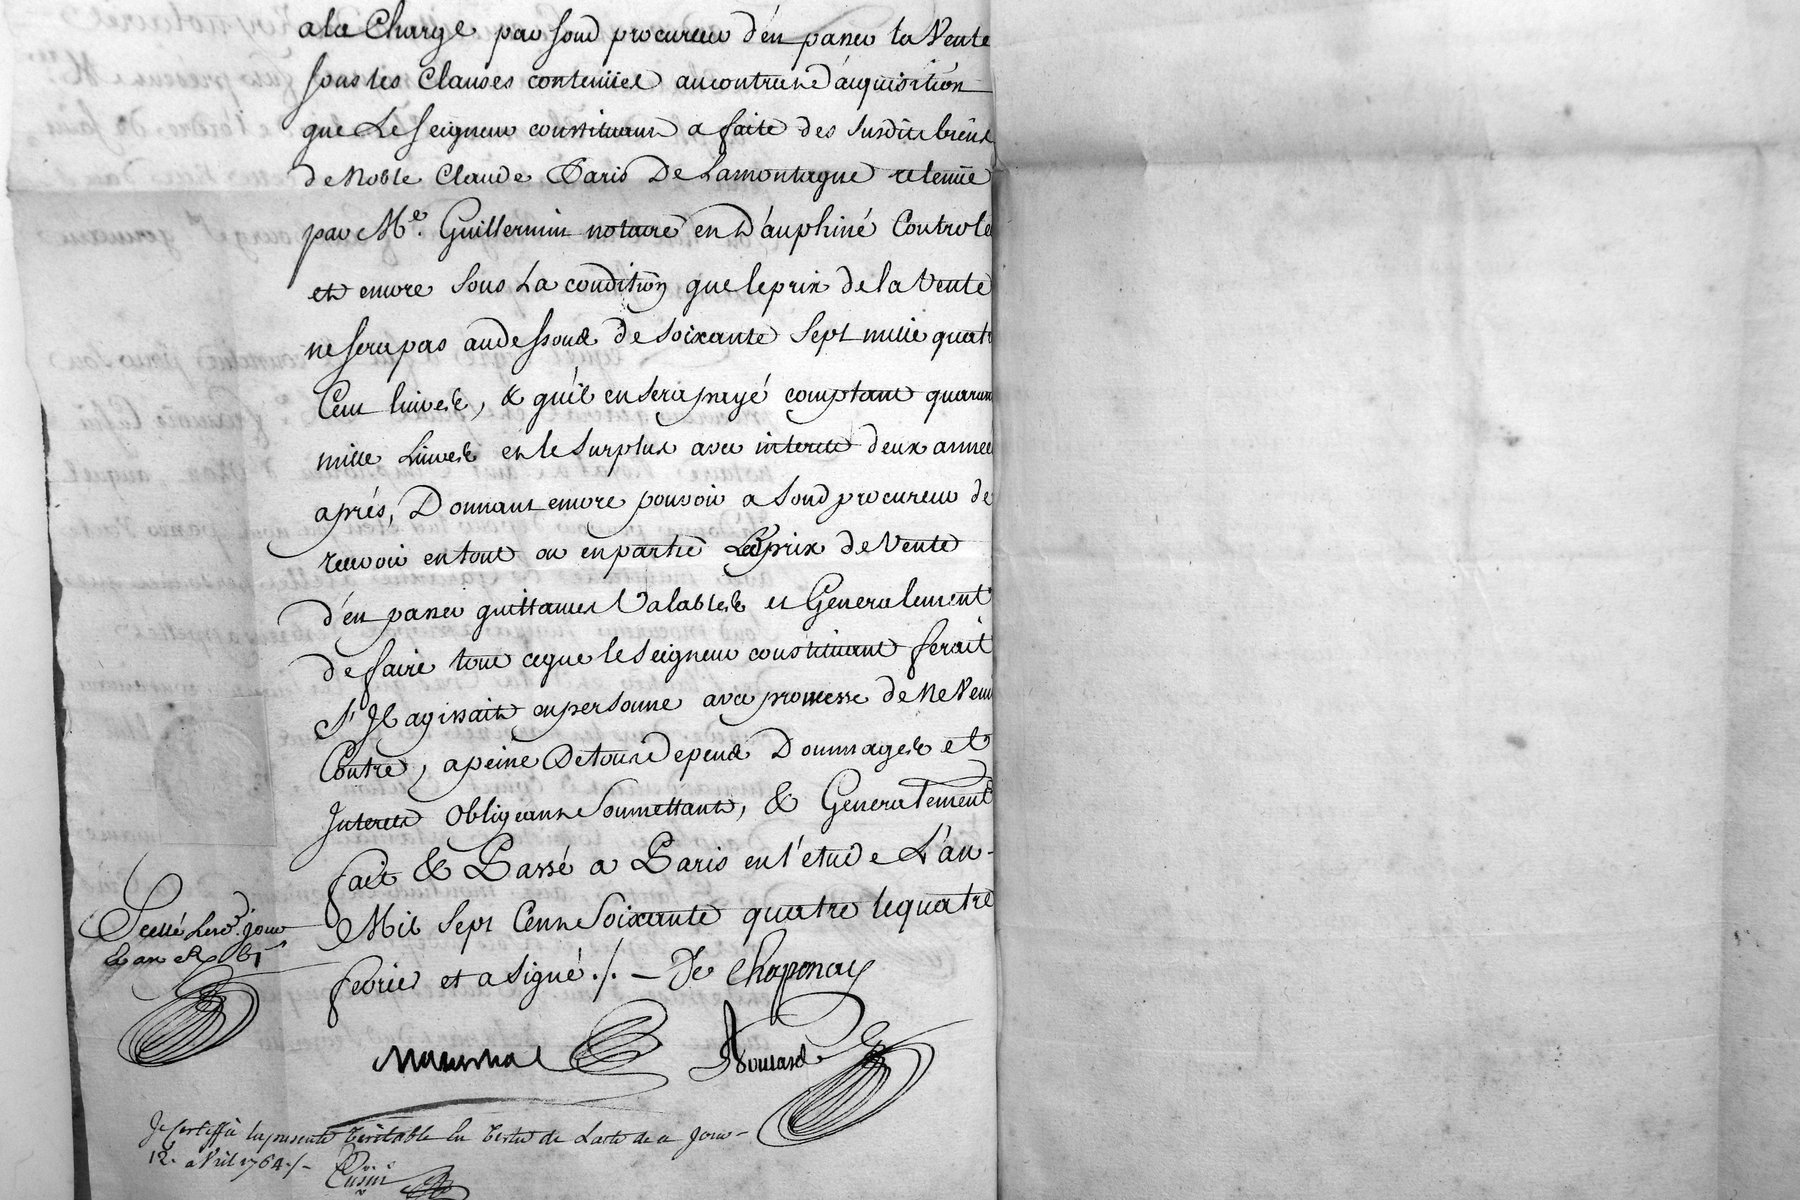 a la Charge par sond procureur d'én passer la Vente
sous les Clauses contenües au contract d'acquisition
que Le seigneur constituant a faite des susdits biens
de Noble Claude Paris De Lamontagne retenüe
par Me. Guillermin notaire en D'auphiné Controlé
et encore sous La condition que le prix de la Vente
ne sera pas audessoud de soixante sept mille quatr
Cent livres, & qu'il en sera payé comptant quarant
mille Livres et le surplus avec interets deux annee
aprés, Donnant encore pouvoir a sond procureur de
recevoir en tout ou en partie Le prix de Vente
d'én passer quittances Valables et Generalement
de faire tout ce que le seigneur constituant ferait
s'Il agissait en personne avec promesse de Ne Venir
Contre, a peine De tous depend Dommages et
Interets obligeant soumettant, & Generalement
fait & Passé a Paris en l'étude L'an
Mil sept Cent soixante quatre le quatre
fevrier et a signé ./. — De Chaponay
Scellé Lesd. jour
& an
Je certiffie la presente veritable en vertu de Lacte de ce jour
12. avril 1764 ./.